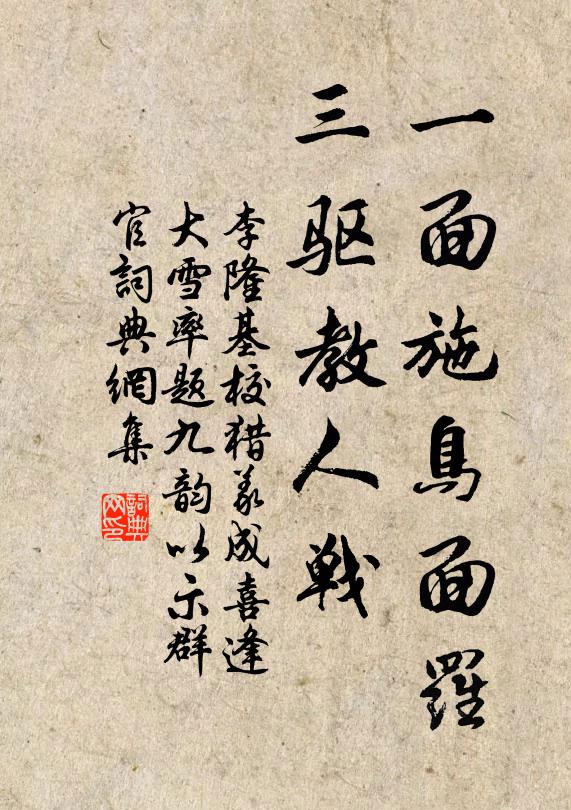 一面施鳥面羅
三驱教人戰
李隆基校猎義成喜逢
大雪率题九韵以示群
官詞典網集
詞典
网印